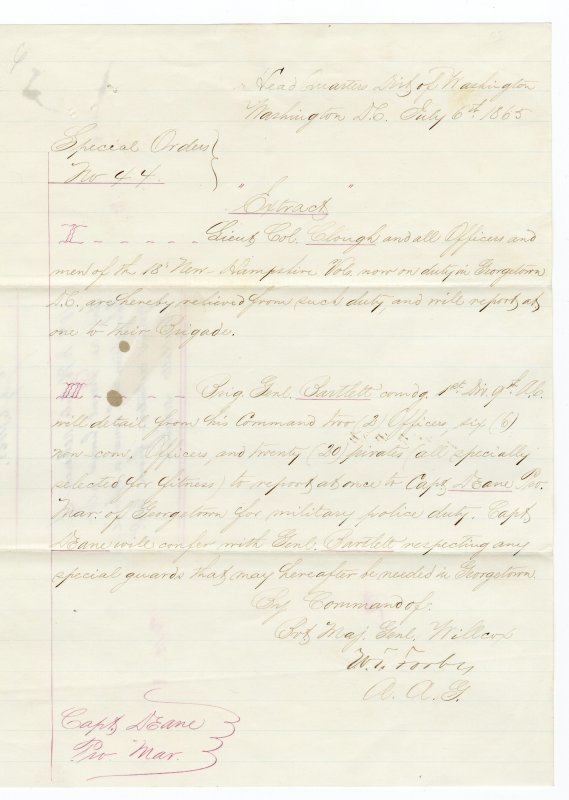 Head Quarters Dist of Washington
Washington D.C. July 6th 1865
Special Orders
No 44.
"Extract"
II - - - - - Lieut Col. Clough and all Officers and
men of the 18th New Hampshire Vols, now on duty in Georgetown
D.C., are hereby relieved from such duty, and will report at
one to their Brigade.
III - - - - - Brig. Genl. Bartlett comdg. 1st Div. 9th A.C.
will detail from his Command two (2) Officers, six (6)
non-com. Officers, and twenty (20) privates (all specially
selected for fitness) to report at once to Capt. Deane Pro.
Mar: of Georgetown for military police duty. Capt
Deane will confer with Genl. Bartlett respecting any
special guards that may hereafter be needed in Georgetown.
By Command of:
Bvt Maj. Genl. Willcox
A. A. G.
Capt Deane
Pro Mar.